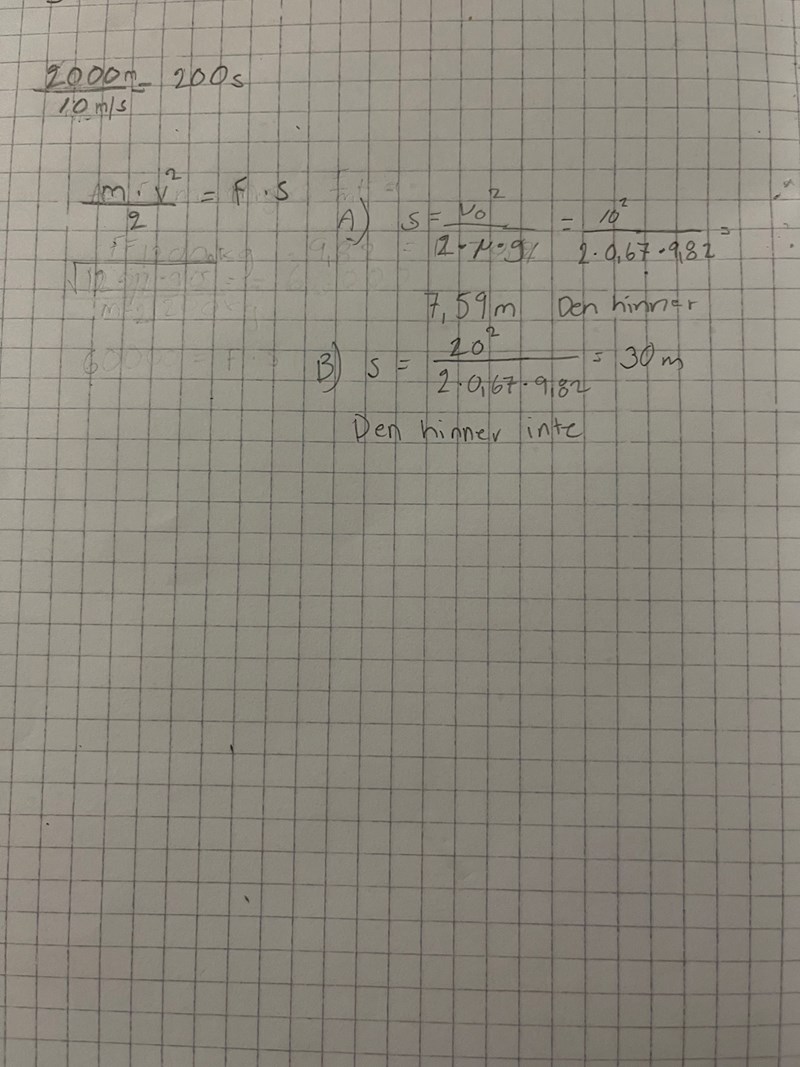 2000m/10 m/s = 200s
m·v²/2 = F·s
A) s = v₀²/2·μ·g = 10²/2·0,67·9,82 =
7,59m Den hinner
B) s = 20²/2·0,67·9,82 = 30m
Den hinner inte